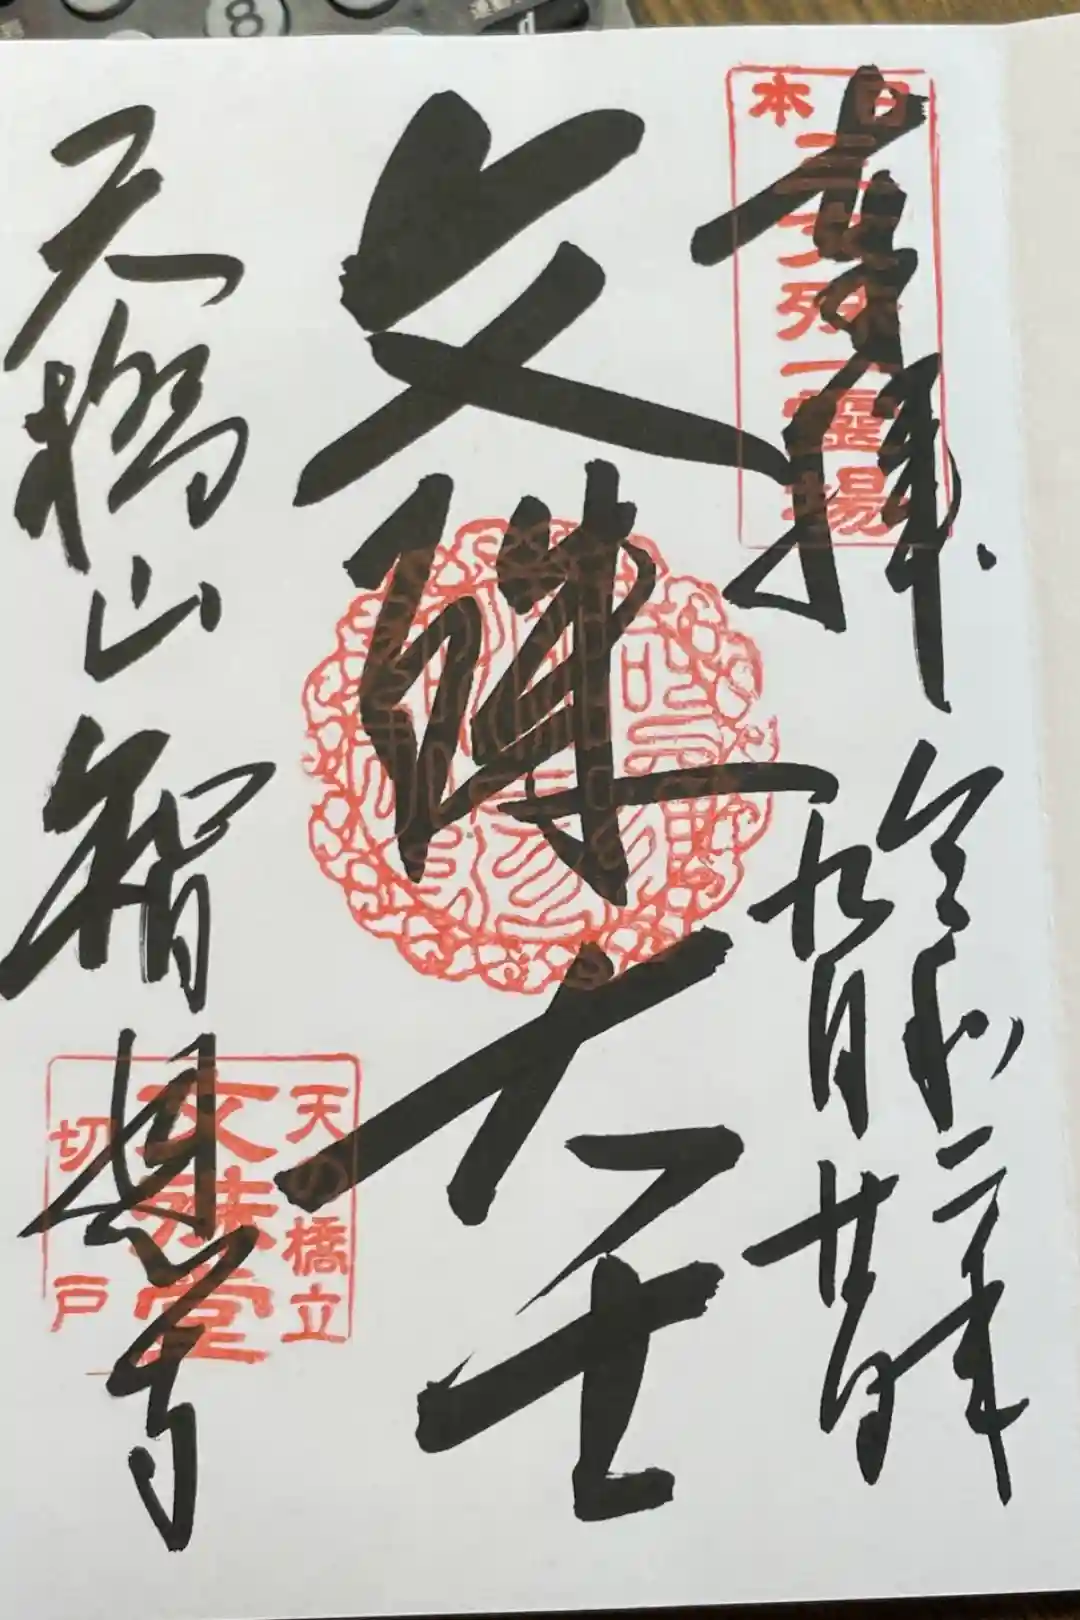 奉拝
日本
三文殊
一霊場
令和二年
九月廿一日
文殊大士
天橋山智恩寺
天の橋立
文殊堂
切戸
8